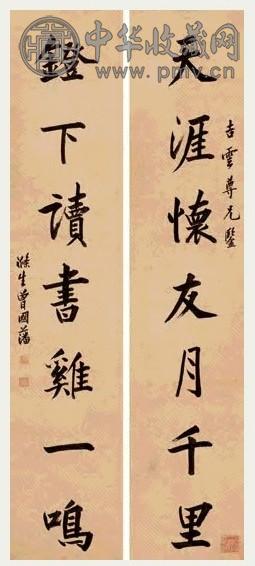 中华收藏网
www.pmv.cn
天涯懷友月千里
吉雲尊兄鑒
鐙下讀書雞一鳴
滌生曾國藩